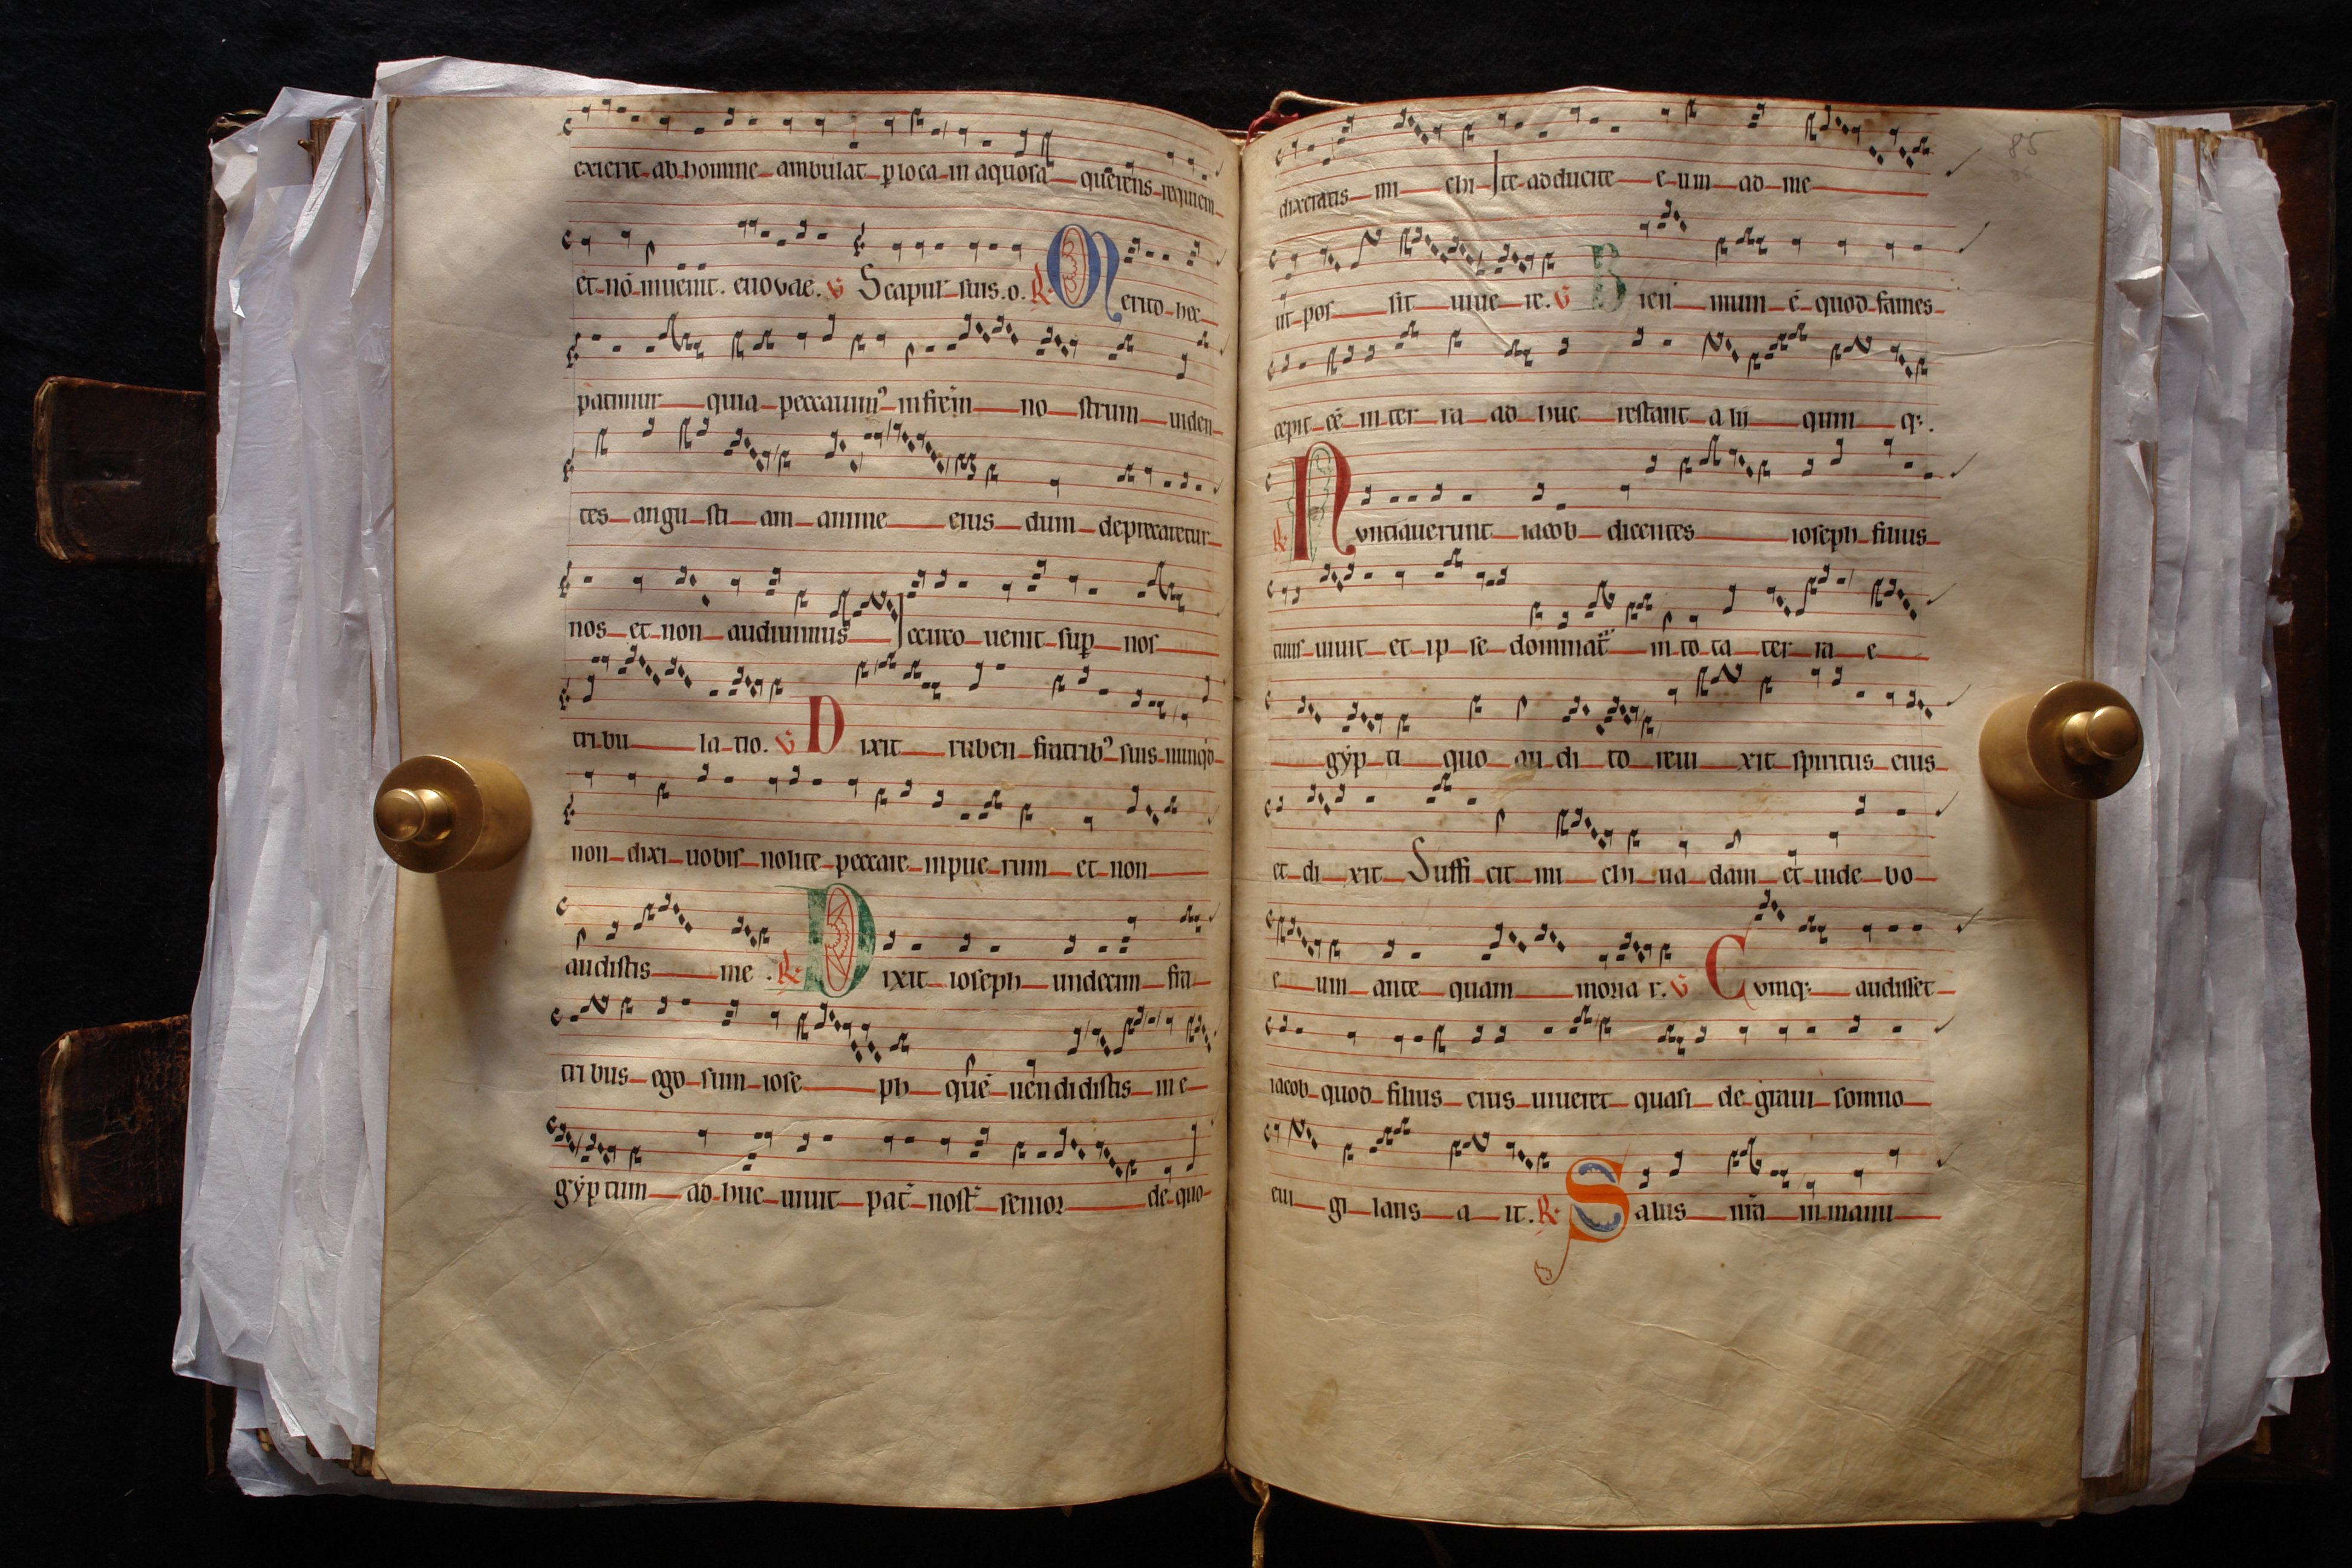 exierit ab homine ambulat ꝑ loca in aquosa querens requiem
et nō inuenit. euouae. ℣ Scapul' suis. o. ℟ Merito hec
patimur quia peccauimꝰ in frēm no strum uiden
tes angu sti am anime eius dum deprecaretur
nos et non audiuimus Iccirco uenit suꝑ nos
tri bu la tio. ℣ Dixit ruben fratribꝰ suis nunqd
non dixi uobis nolite peccare in pue rum et non
audistis me. ℟ Dixit ioseph undecim fra
tri bus ego sum iose ph quē uen didistis in e
gẏp tum ad huc uiuit pat̄ nost̄ senior de quo
85
dixeratis mi chi Ite adducite e um ad me
ut pos sit uiue re. ℣ Bien nium ē quod fames
cepit eē in ter ra ad huc restant a lii quin qꝫ.
℟ Nvntiauerunt iacob dicentes ioseph filius
tuus uiuit et ip se dominat̄ in to ta ter ra e
gẏp ti quo au di to reui xit spiritus eius
et di xit Suffi cit mi chi ua dam et uide bo
e um ante quam moria r. ℣ Cvmqꝫ audisset
iacob quod filius eius uiueret quasi de graui somno
eui gi lans a it. ℟ Salus nr̄a in manu